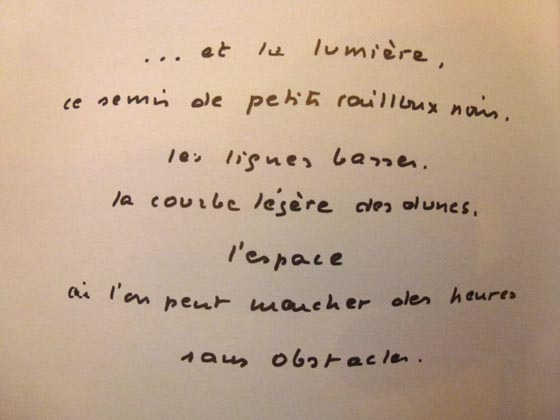 ... et la lumière,
ce semis de petits cailloux noirs.
les lignes basses.
la courbe légère des dunes.
l'espace
où l'on peut marcher des heures
sans obstacles.